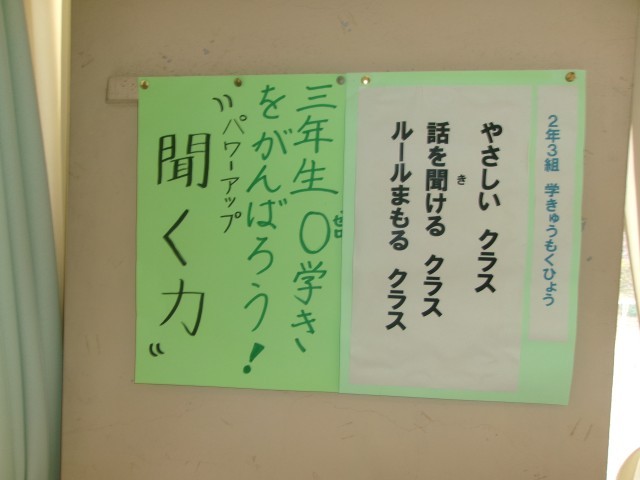 2年3組 学きゅうもくひょう
やさしい クラス
話を聞ける クラス
き
ルールまもる クラス
三年生0学き
ゼロ
をがんばろう!
〝パワーアップ
聞く力〟